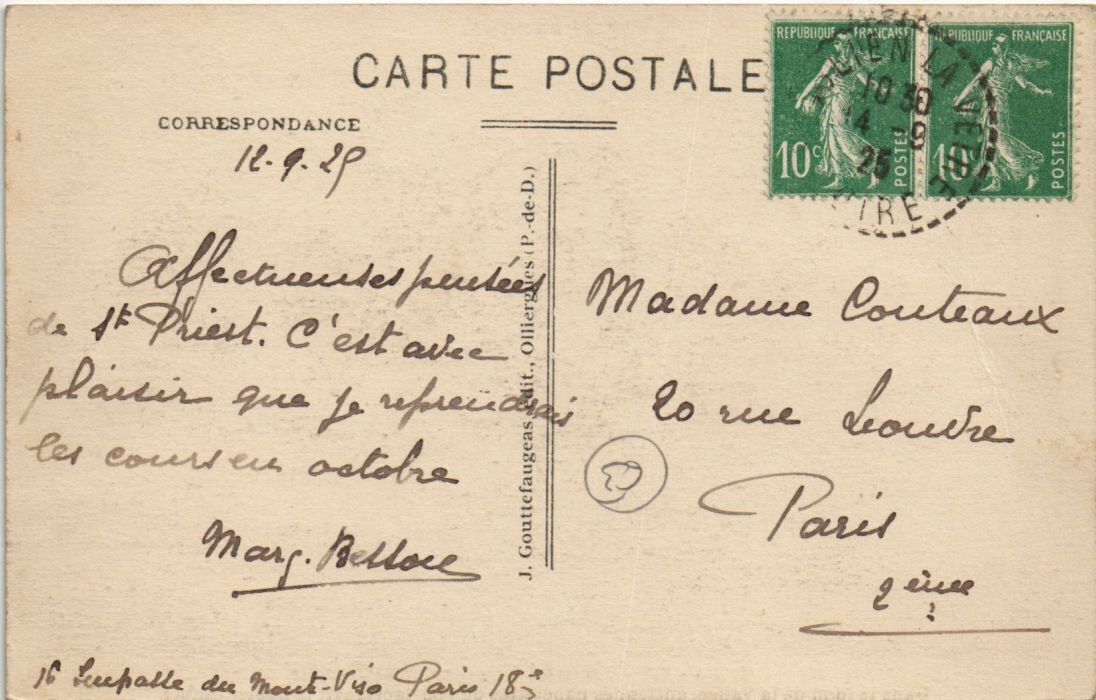 CARTE POSTALE
CORRESPONDANCE
12-9-25
Affectueuses pensées
de St Priest. C'est avec
plaisir que je reprendrais
les cours en octobre
Marg.
16 Impasse du Mont-Viso Paris 18e
J. Gouttefaugeas, édit., Olliergues (P.-de-D.)
REPUBLIQUE FRANÇAISE
10c
POSTES
REPUBLIQUE FRANÇAISE
10c
POSTES
LA VETRE
10 30
14 - 9
25
Madame Couteaux
20 rue Louvre
Paris
2ème